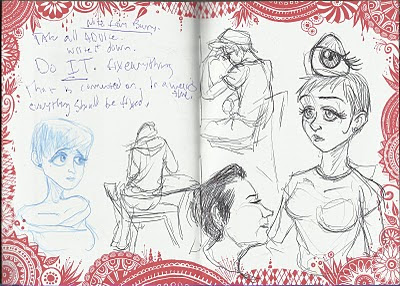 Note from Sunny.
Take all ADVICE.
write it down.
Do IT. fix everything
that is commented on. In a week's
time,
everything should be fixed.